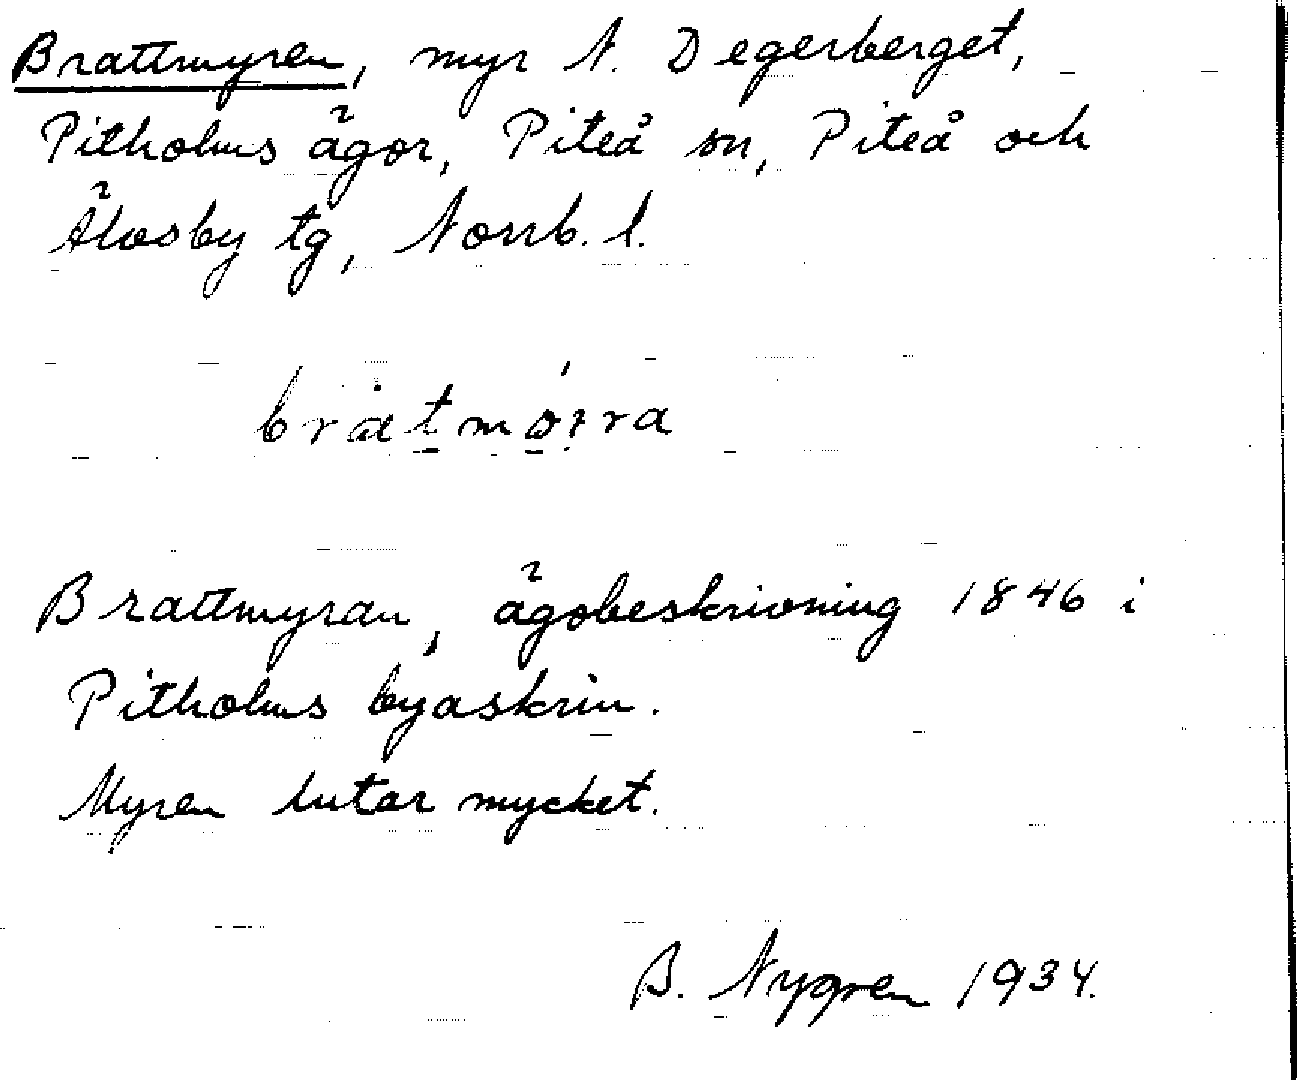 Brattmyren, myr N. Degerberget,
Pitholms ägor, Piteå sn, Piteå och
Älvsby tg, Norrb. l.
Brattmyran, ägobeskrivning 1846 i
Pitholms byaskrin.
Myren lutar mycket.
B. Nygren 1934.